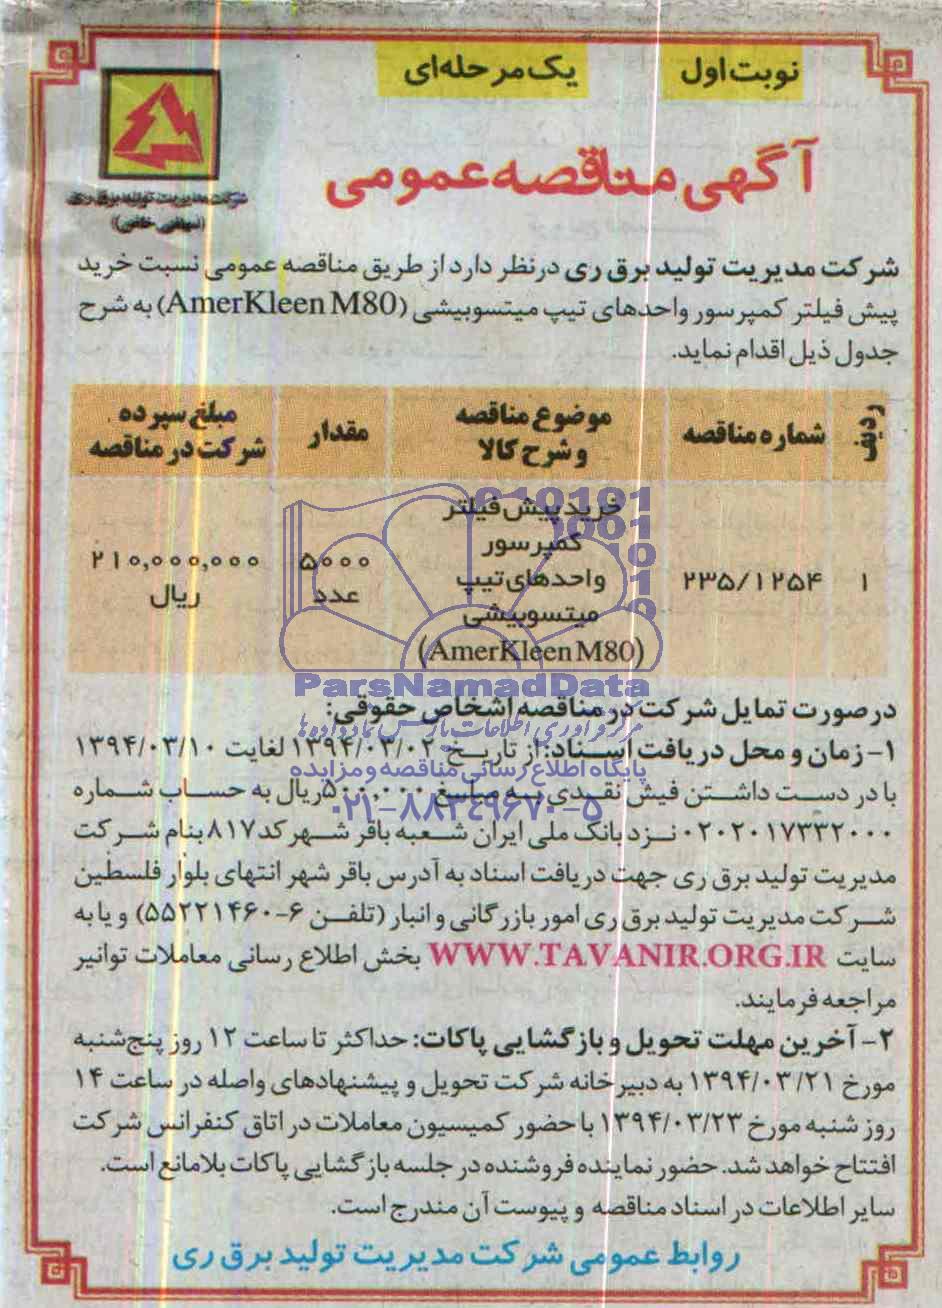 نوبت اول
یک مرحله‌ای
آگهی مناقصه عمومی
شرکت مدیریت تولید برق ری
(سهامی خاص)
شرکت مدیریت تولید برق ری درنظر دارد از طریق مناقصه عمومی نسبت خرید
پیش فیلتر کمپرسور واحدهای تیپ میتسوبیشی (AmerKleen M80) به شرح
جدول ذیل اقدام نماید.
ردیف
شماره مناقصه
موضوع مناقصه
و شرح کالا
مقدار
مبلغ سپرده
شرکت در مناقصه
۱
۲۳۵/۱۲۵۴
خرید پیش فیلتر
کمپرسور
واحدهای تیپ
میتسوبیشی
(AmerKleen M80)
۵۰۰۰
عدد
۲۱۰,۰۰۰,۰۰۰
ریال
ParsNamadData
مرکز فرآوری اطلاعات پارس نماد داده‌ها
پایگاه اطلاع رسانی مناقصه و مزایده
۰۲۱-۸۸۳۴۹۶۷۰-۵
درصورت تمایل شرکت در مناقصه اشخاص حقوقی:
۱- زمان و محل دریافت اسناد: از تاریخ ۱۳۹۴/۰۳/۰۲ لغایت ۱۳۹۴/۰۳/۱۰
با در دست داشتن فیش نقدی به مبلغ ۵۰۰,۰۰۰ریال به حساب شماره
۰۲۰۲۰۱۷۳۳۲۰۰۰ نزد بانک ملی ایران شعبه باقر شهر کد ۸۱۷ بنام شرکت
مدیریت تولید برق ری جهت دریافت اسناد به آدرس باقر شهر انتهای بلوار فلسطین
شرکت مدیریت تولید برق ری امور بازرگانی و انبار (تلفن ۶-۵۵۲۲۱۴۶۰) و یا به
سایت WWW.TAVANIR.ORG.IR بخش اطلاع رسانی معاملات توانیر
مراجعه فرمایند.
۲- آخرین مهلت تحویل و بازگشایی پاکات: حداکثر تا ساعت ۱۲ روز پنج‌شنبه
مورخ ۱۳۹۴/۰۳/۲۱ به دبیرخانه شرکت تحویل و پیشنهادهای واصله در ساعت ۱۴
روز شنبه مورخ ۱۳۹۴/۰۳/۲۳ با حضور کمیسیون معاملات در اتاق کنفرانس شرکت
افتتاح خواهد شد. حضور نماینده فروشنده در جلسه بازگشایی پاکات بلامانع است.
سایر اطلاعات در اسناد مناقصه و پیوست آن مندرج است.
روابط عمومی شرکت مدیریت تولید برق ری